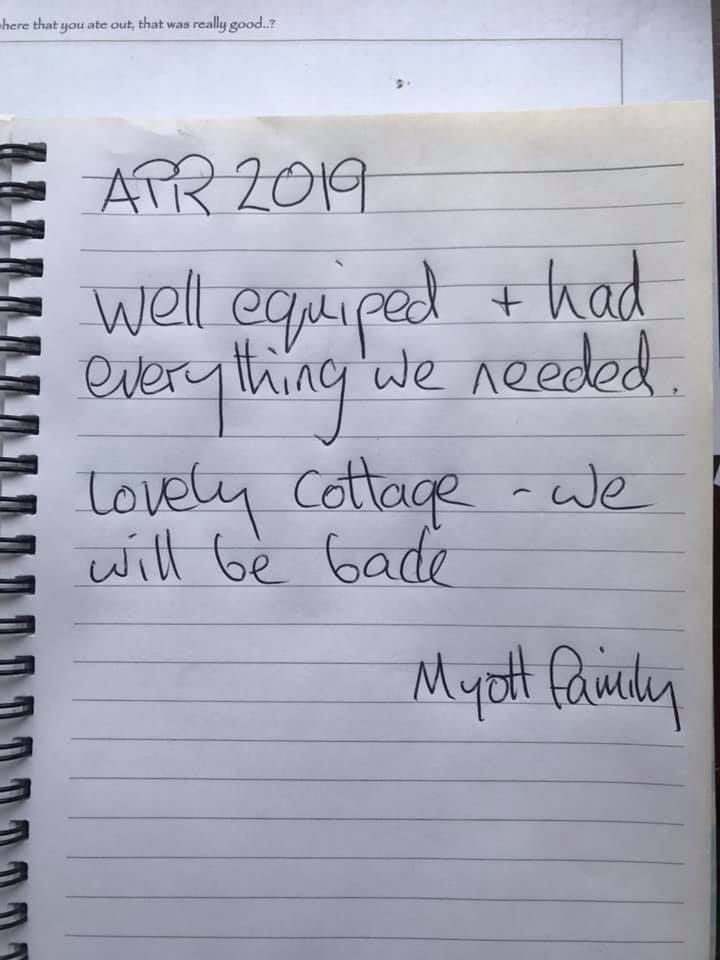 here that you ate out, that was really good..?
APR 2019
Well equiped + had
everything we needed.
Lovely Cottage - We
will be back
Myott Family